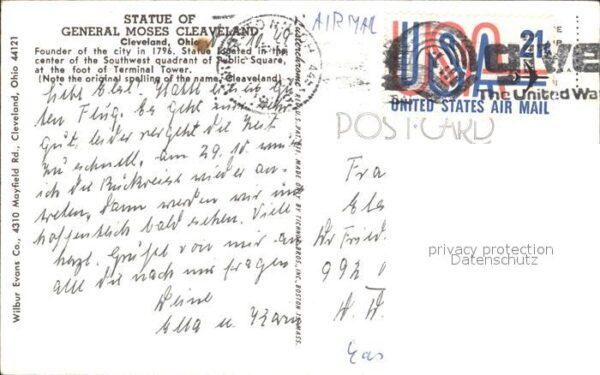 STATUE OF
GENERAL MOSES CLEAVELAND
Cleveland, Ohio
Founder of the city in 1796. Statue located in the
center of the Southwest quadrant of Public Square,
at the foot of Terminal Tower.
(Note the original spelling of the name, Cleaveland)
Flug. Es geht uns sehr
gut, leider vergeht die Zeit
zu schnell. am 29.10. muß
ich die Rückreise wieder an-
treten, dann werden wir uns
hoffentlich bald sehen. Viele
Grüße von mir an
all die nach mir fragen
Deine
Ella u.
Wilbur Evans Co., 4310 Mayfield Rd., Cleveland, Ohio 44121
MADE ONLY BY TICHNOR BROS., INC., BOSTON 15, MASS.
AIR MAIL
USA 21¢
UNITED STATES AIR MAIL
The United Wa
POST CARD
Fra
Dr Fried
privacy protection
Datenschutz
992